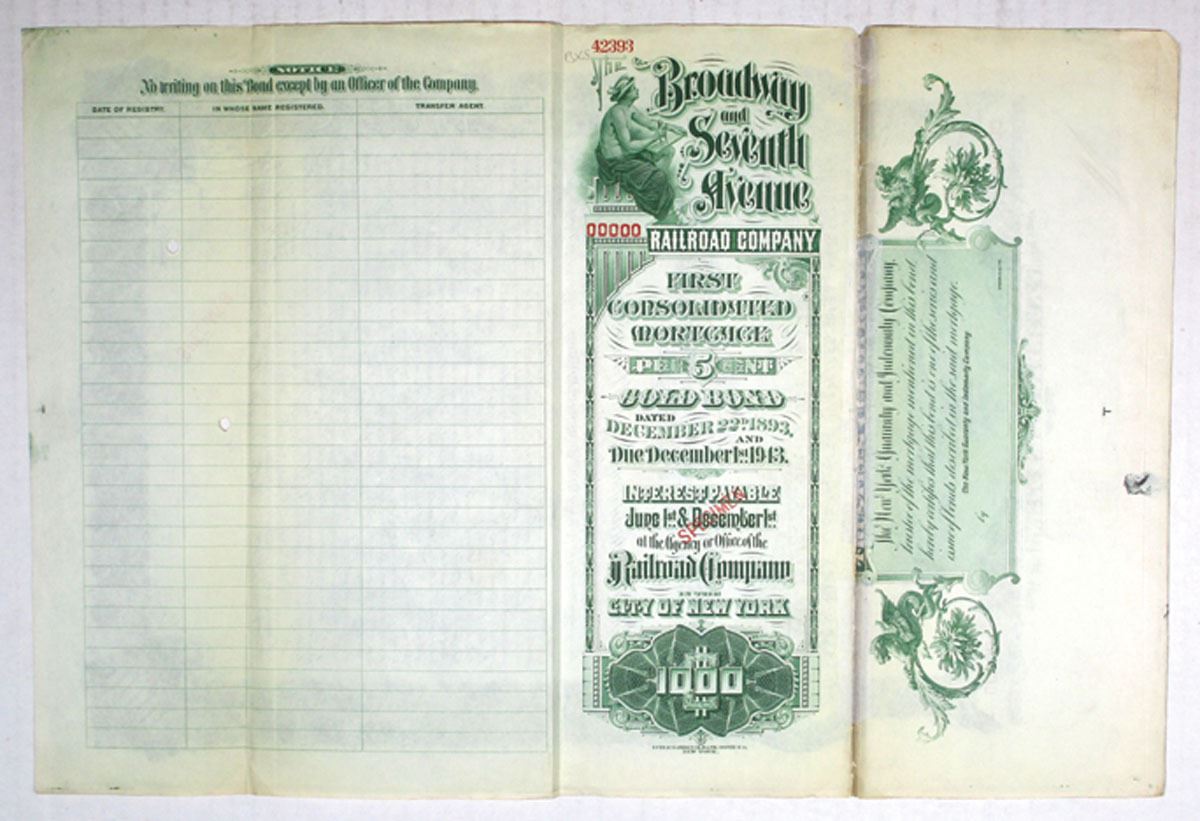 NOTICE
No writing on this Bond except by an Officer of the Company.
DATE OF REGISTRY.
IN WHOSE NAME REGISTERED.
TRANSFER AGENT.
42393
The
Broadway
and
Seventh
Avenue
00000
RAILROAD COMPANY
FIRST
CONSOLIDATED
MORTGAGE
PER 5 CENT
GOLD BOND
DATED
DECEMBER 22D 1893,
AND
Due December 1st 1943.
INTEREST PAYABLE
June 1st & December 1st
SPECIMEN
at the Agency or Office of the
Railroad Company
IN THE
CITY OF NEW YORK
1000
NEW YORK.
The New York Guaranty and Indemnity Company,
trustee of the mortgage mentioned in this bond
hereby certifies that this bond is one of the series and
issue of bonds described in the said mortgage.
The New York Guaranty and Indemnity Company
by
T